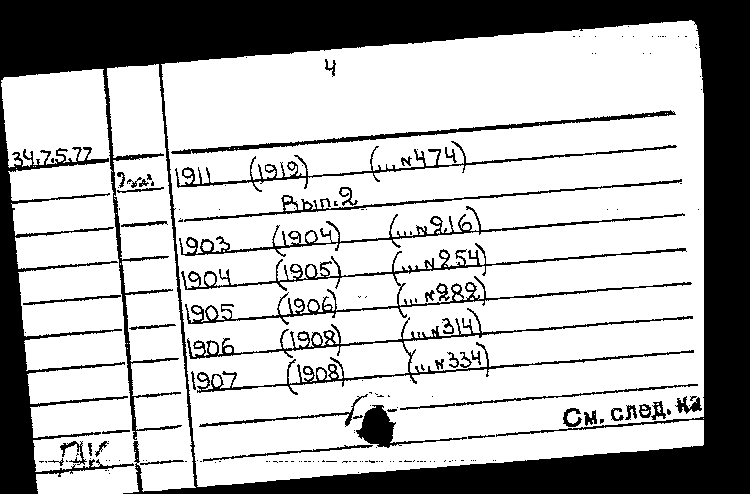 4
34.7.5.77
1911 (1912) (... №474)
Вып.2
1903 (1904) (... №216)
1904 (1905) (... №254)
1905 (1906) (... №282)
1906 (1908) (... №314)
1907 (1908) (... №334)
См. след. ка
ГАК